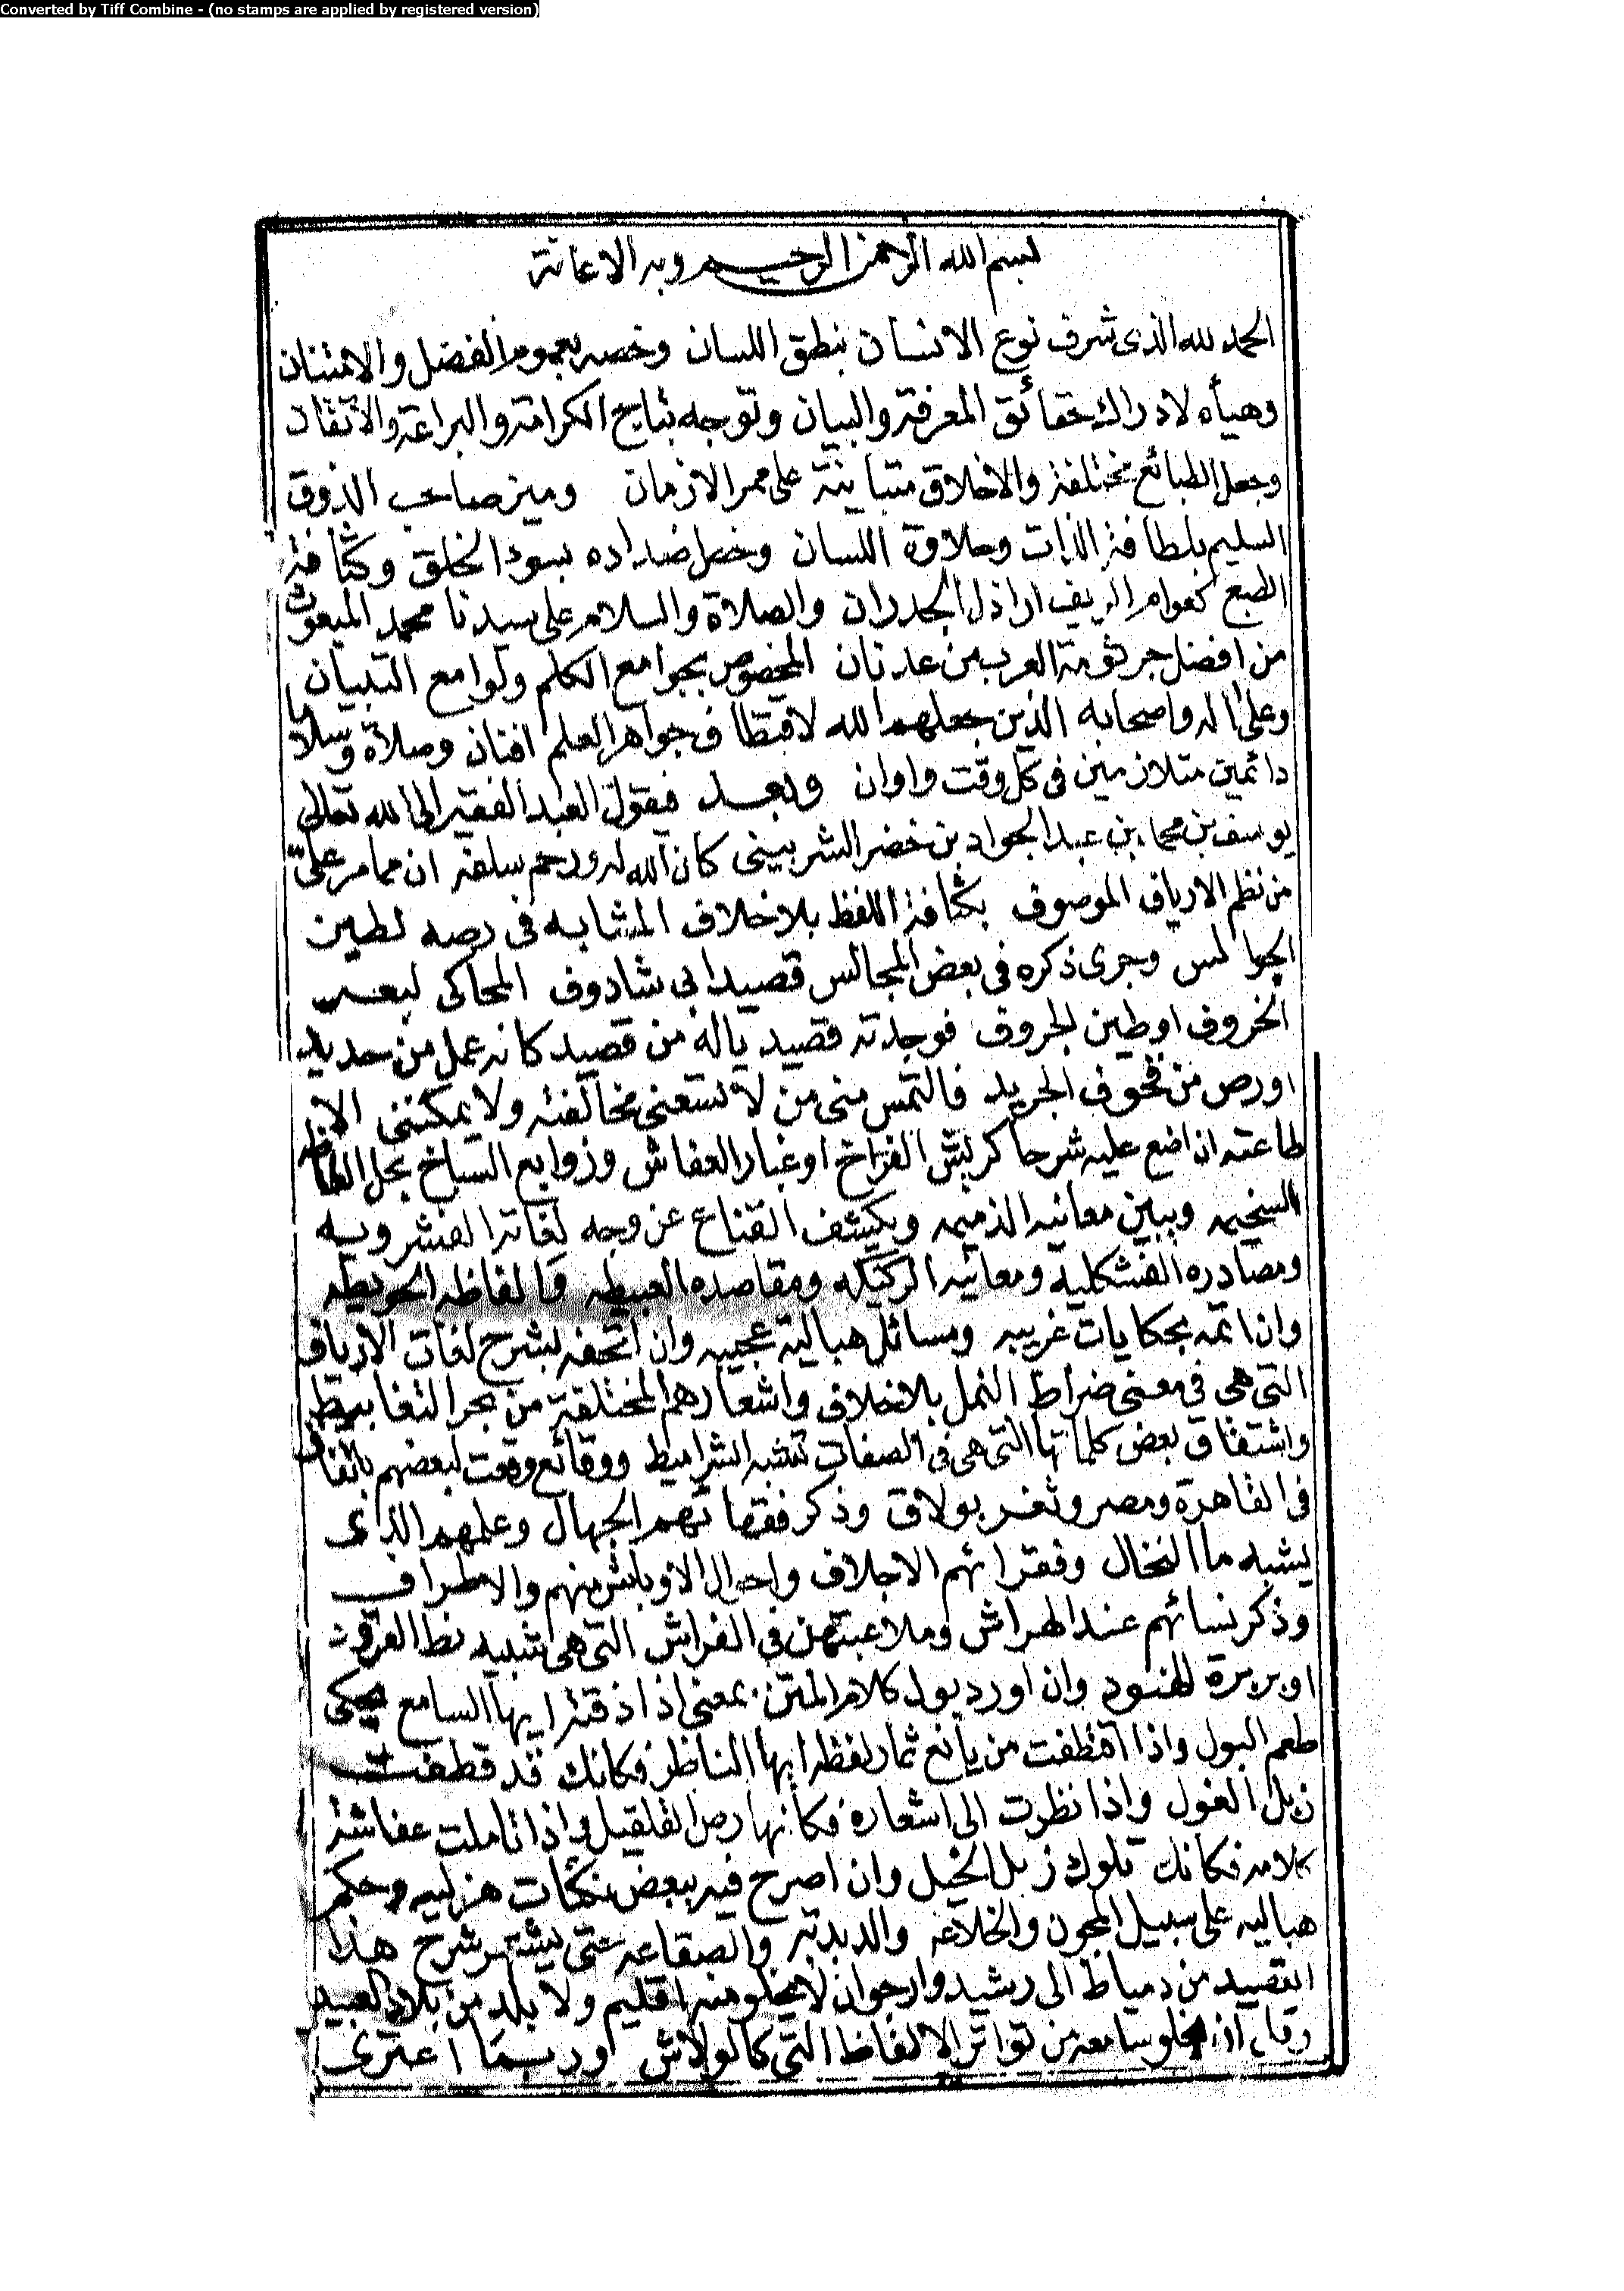 Converted by Tiff Combine - (no stamps are applied by registered version)
بسم الله الرحمن الرحيم وبه الاعانة
الحمد لله الذى شرف نوع الانسان بنطق اللسان وخصه بعموم الفضل والامتنان
وهيأه لادراك حقائق المعرفة والبيان وتوجه بتاج الكرامة والبراعة والاتقان
وجعل الطبائع مختلفة والاخلاق متباينة على ممر الازمان وميز صاحب الذوق
السليم بلطافة الذات وحلاوة اللسان وخص اضداده بسوء الخلق وكثافة
الطبع كعوام الريف اراذل الجدران والصلاة والسلام على سيدنا محمد المبعوث
من افضل جرثومة العرب من عدنان المخصوص بجوامع الكلم ولوامع التبيان
وعلى اله واصحابه الذين جعلهم الله لاقتطاف جواهر العلم افنان وصلاة وسلاما
دائمين متلازمين فى كل وقت واوان وبعد فيقول العبد الفقير الى الله تعالى
يوسف بن محمد بن عبد الجواد بن خضر الشربينى كان الله له ورحم سلفه ان مما مر علىّ
من نظم الارياف الموصوف بكثافة اللفظ بلا خلاف المشابه فى رصه لطين
الجوالس وجرى ذكره فى بعض المجالس قصيد ابى شادوف المحاكى لبعر
الخروف او طين الجروف فوجدته قصيد ياله من قصيد كانه عمل من حديد
او رص من قحوف الجريد فالتمس منى من لا تسعنى مخالفته ولا يمكننى الا
طاعته ان اضع عليه شرحا كريش الفراخ او غبار العفاش وزوابع السباخ يحل الفاظه
السخيمه ويبين معانيه الذميمه ويكشف القناع عن وجه لغاته الفشرويه
ومصادره الفشكليه ومعانيه الركيكه ومقاصده العبيطه والفاظه الحويطه
وان اتمه بحكايات غريبه ومسائل هبالية عجيبه وان اتحفه بشرح لغات الارياف
التى هى فى معنى ضراط النمل بلا خلاف واشعارهم المختلقة من بحر التغابيط
واشتقاق بعض كلماتها التى هى فى الصفات تشبه الشراميط ووقائع وقعت لبعضهم باتفاق
فى القاهرة ومصر وثغر بولاق وذكر فقهائهم الجهال وعلمهم الذى
يشبه ما النخال وفقرائهم الاجلاف واحوال الاوباش منهم والاطراف
وذكر نسائهم عند الهراش وملاعبتهن فى الفراش التى هى شبيه نط القرود
او بربرة الهنود وان اورد بول كلام المتن بمعنى اذا ذقت ايها السامع يحكى
طعم البول واذا اقتطفت من يانع ثمار لفظ ايها الناظر فكانك قد قطفت
زبل الغول واذا نظرت الى اشعاره فكانها رص القلقيل واذا تاملت عفاشة
كلامه فكانك تلوك زبل الخيل وان اصرح فيه ببعض نكات هزليه وحكم
هباليه على سبيل المجون والخلاعه والدبدبة والصقاعه حتى يشتهر شرح هذا
القصيد من دمياط الى رشيد وارجو ان لا يخلو منه اقليم ولا بلد من بلاد العبيد
وقل ان يخلو سامعه من تواتر الالفاظ التى كالولاش او ربما اعترى